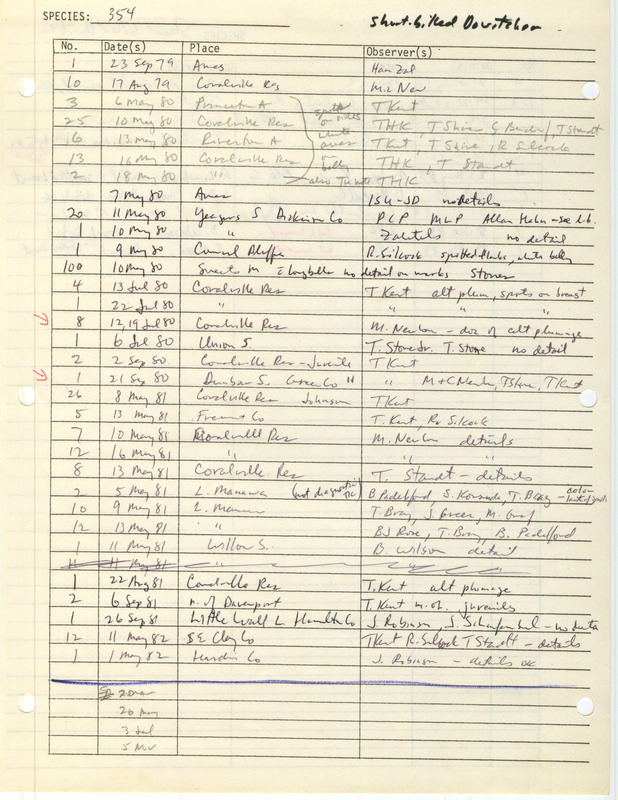 SPECIES: 354 Short-billed Dowitcher
No. Date(s) Place Observer(s)
1 23 Sep 79 Ames
10 17 Aug 79 Coralville Res M. Newlon
3 6 May 80 A T Kent
25 10 May 80 Coralville Res THK, T Shires, T Staudt
6 13 May 80 Riverton A T Kent, T Shires, R Silcock
13 16 May 80 Coralville Res THK, T Staudt
2 18 May 80 " THK
spots on sides
white
belly
7 May 80 Ames ISU-JD no details
20 11 May 80 Yeagers S Dickinson Co PLP MLP Allan
1 10 May 80 " no detail
1 9 May 80 Council Bluffs R. Silcock spotted flanks, white belly
100 10 May 80 Sweets M no detail on marks Stones
4 13 Jul 80 Coralville Res T Kent alt plum, spots on breast
1 22 Jul 80 " " " "
8 12, 19 Jul 80 Coralville Res M. Newlon - of alt plumage
1 6 Jul 80 Union S T. Stone Jr. T. Stone no detail
2 2 Sep 80 Coralville Res - Juvenile T Kent
1 21 Sep 80 Dunbar S. Greene Co " " M+C Newlon, T Stone, T Kent
26 8 May 81 Coralville Res Johnson T Kent
5 13 May 81 Fremont Co T. Kent, R. Silcock
7 10 May 81 Coralville Res M. Newlon details
12 16 May 81 " " "
8 13 May 81 Coralville Res T. Staudt - details
2 5 May 81 L. Manawa (not diagnostic TK) B. Padelford, S. Konrad, T. Bray
10 9 May 81 L. Manawa T. Bray, J. Green, M. Graf
12 13 May 81 " " BJ Rose, T. Bray, B. Padelford
1 11 May 81 Willow S. B. Wilson detail
11 11 May 81
1 22 Aug 81 Coralville Res T. Kent alt plumage
2 6 Sep 81 n. of Davenport T. Kent m.ob. juveniles
1 26 Sep 81 Little Wall L Hamilton Co J. Robinson,
12 11 May 82 SE Clay Co T Kent R. Silcock T Staudt - details
1 1 May 82 Hardin Co J. Robinson - details ok
20 May
3 Jul
5 Nov